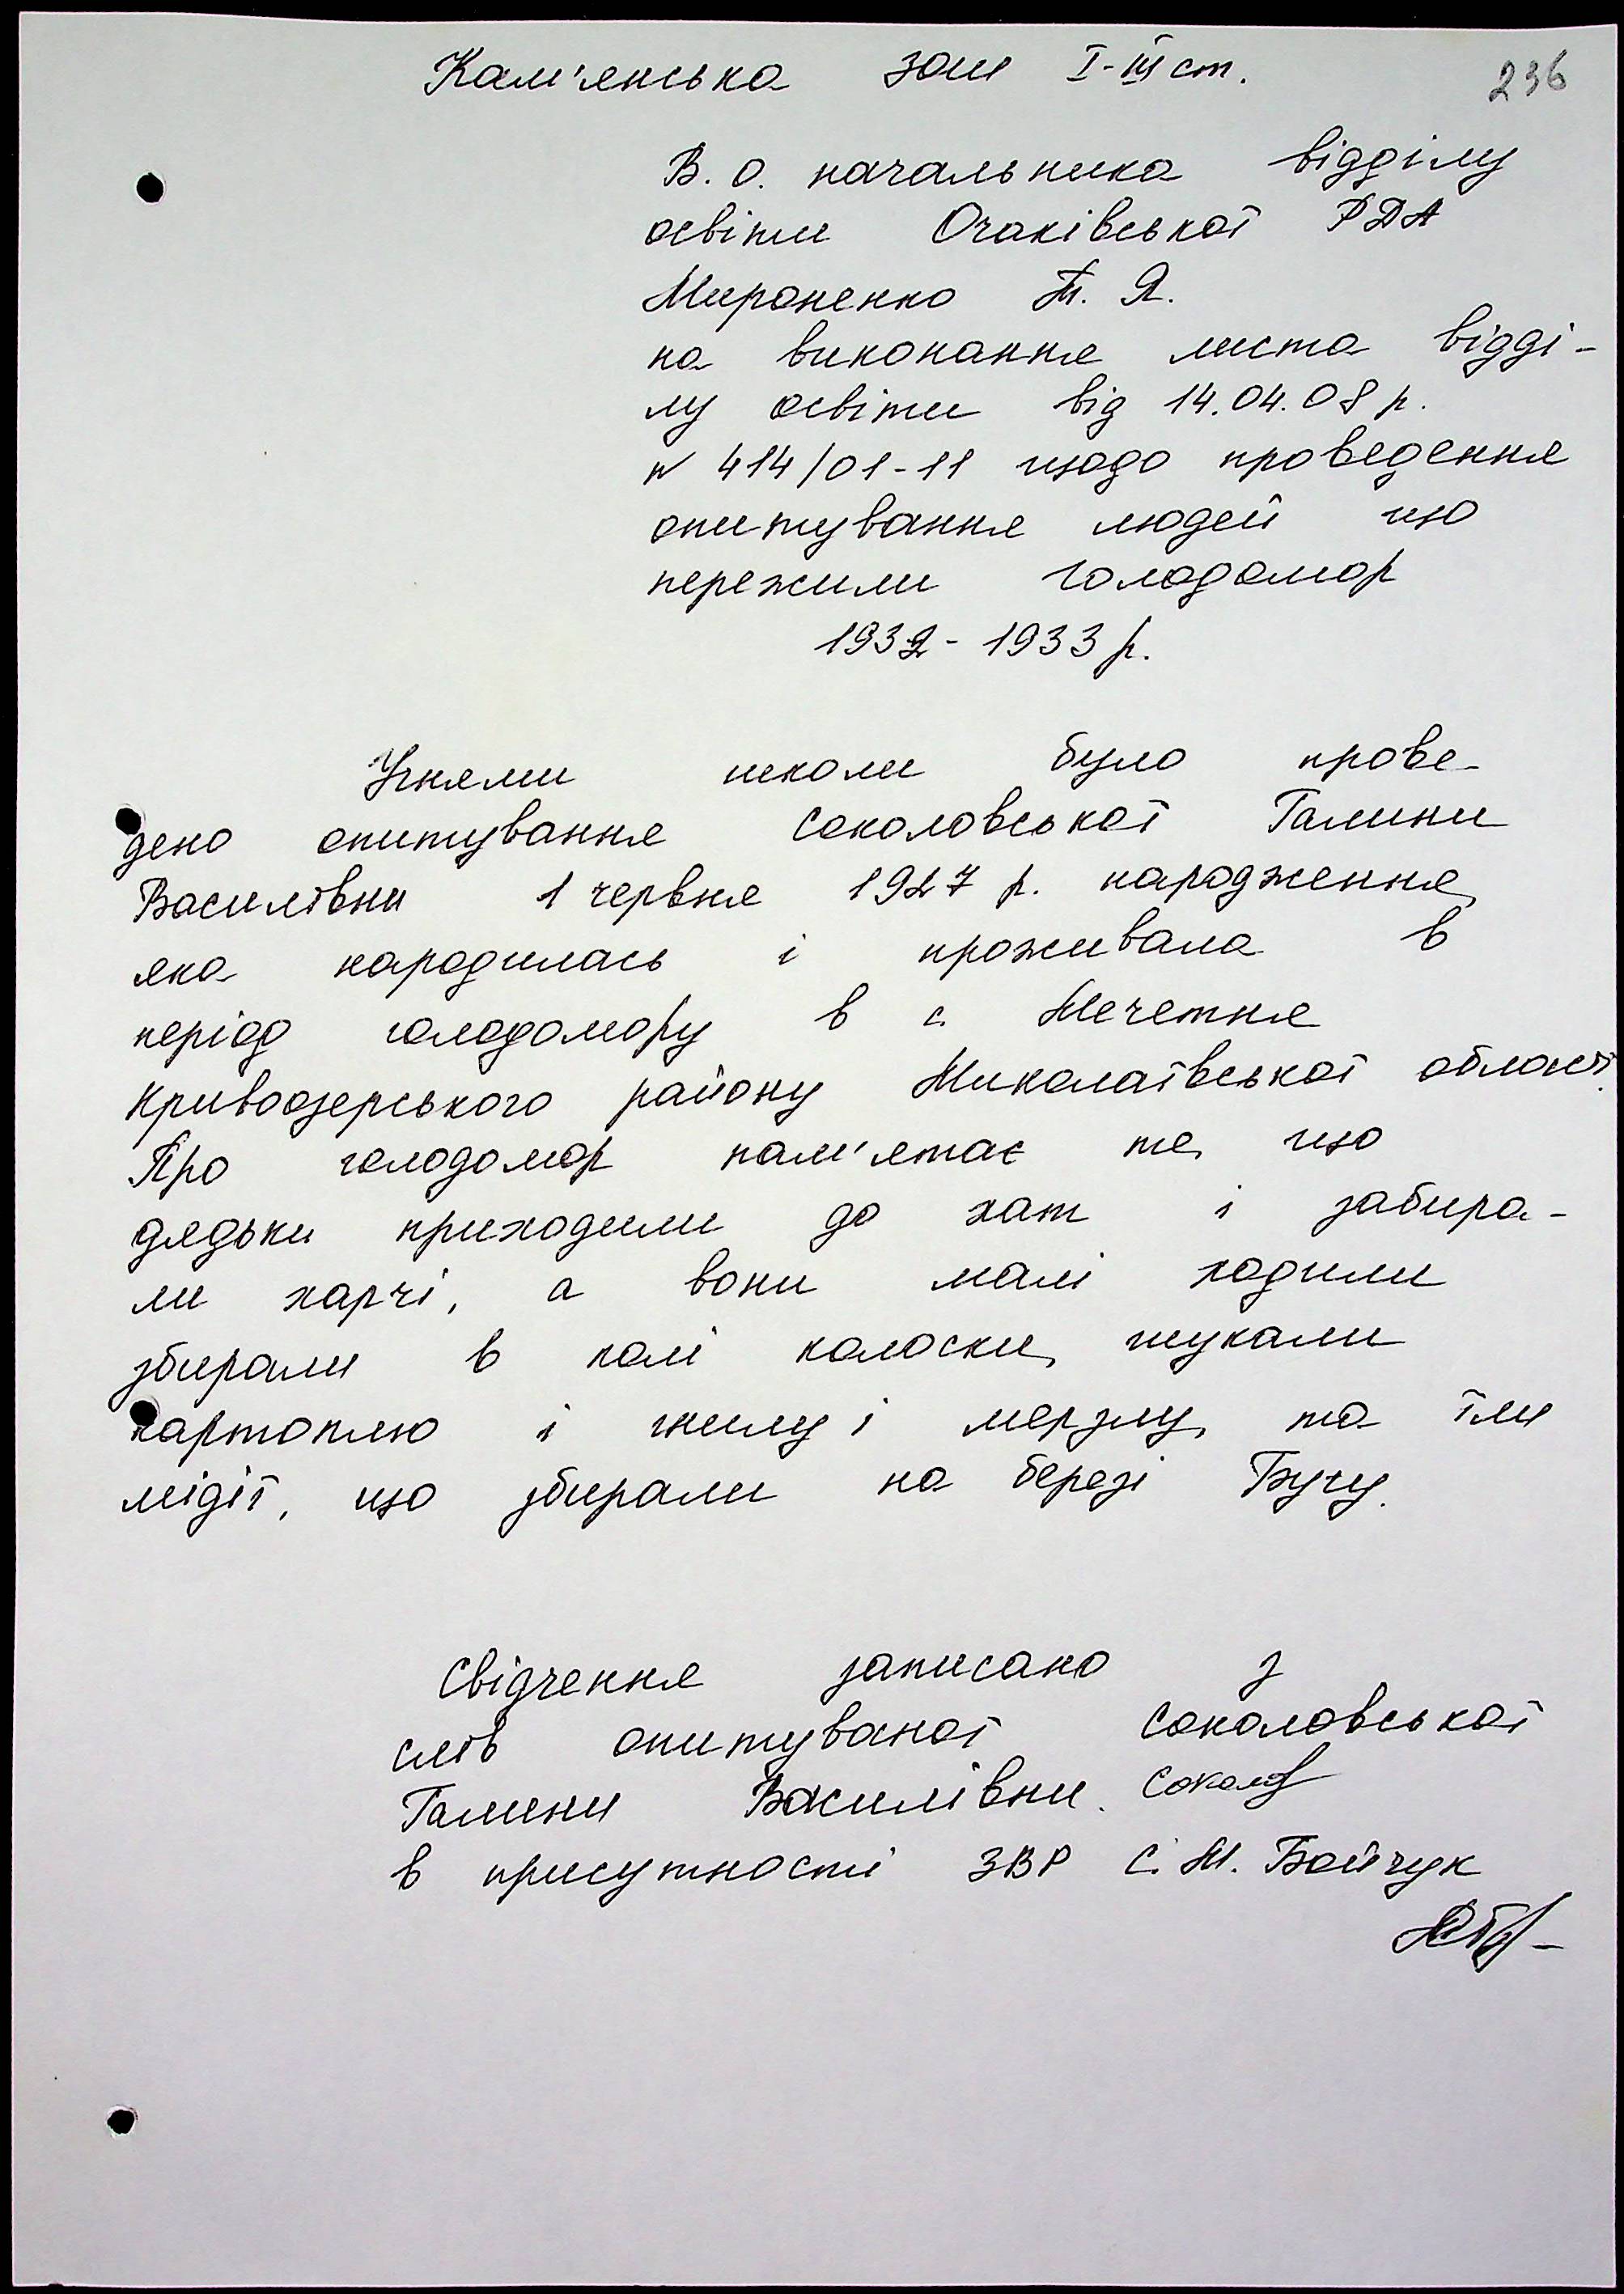 Кам'янська зош І-ІІІ ст.
236
В. о. начальника відділу
освіти Очаківської РДА
Мироненко Т. Я.
на виконання листа відді-
лу освіти від 14.04.08 р.
№ 414/01-11 щодо проведення
опитування людей що
пережили голодомор
1932-1933 р.
Учнями школи було прове-
дено опитування Соколовської Галини
Василівни 1 червня 1927 р. народження,
яка народилась і проживала в
період голодомору в с. Мечетня
Кривоозерського району Миколаївської області.
Про голодомор пам'ятає те, що
дядьки приходили до хат і забира-
ли харчі, а вони малі ходили
збирали в полі колоски, шукали
картоплю і гнилу і мерзлу, та їли
мідії, що збирали на березі Бугу.
Свідчення записано з
слів опитуваної Соколовської
Галини Василівни. Сокол
в присутності ЗВР С. М. Бойчук